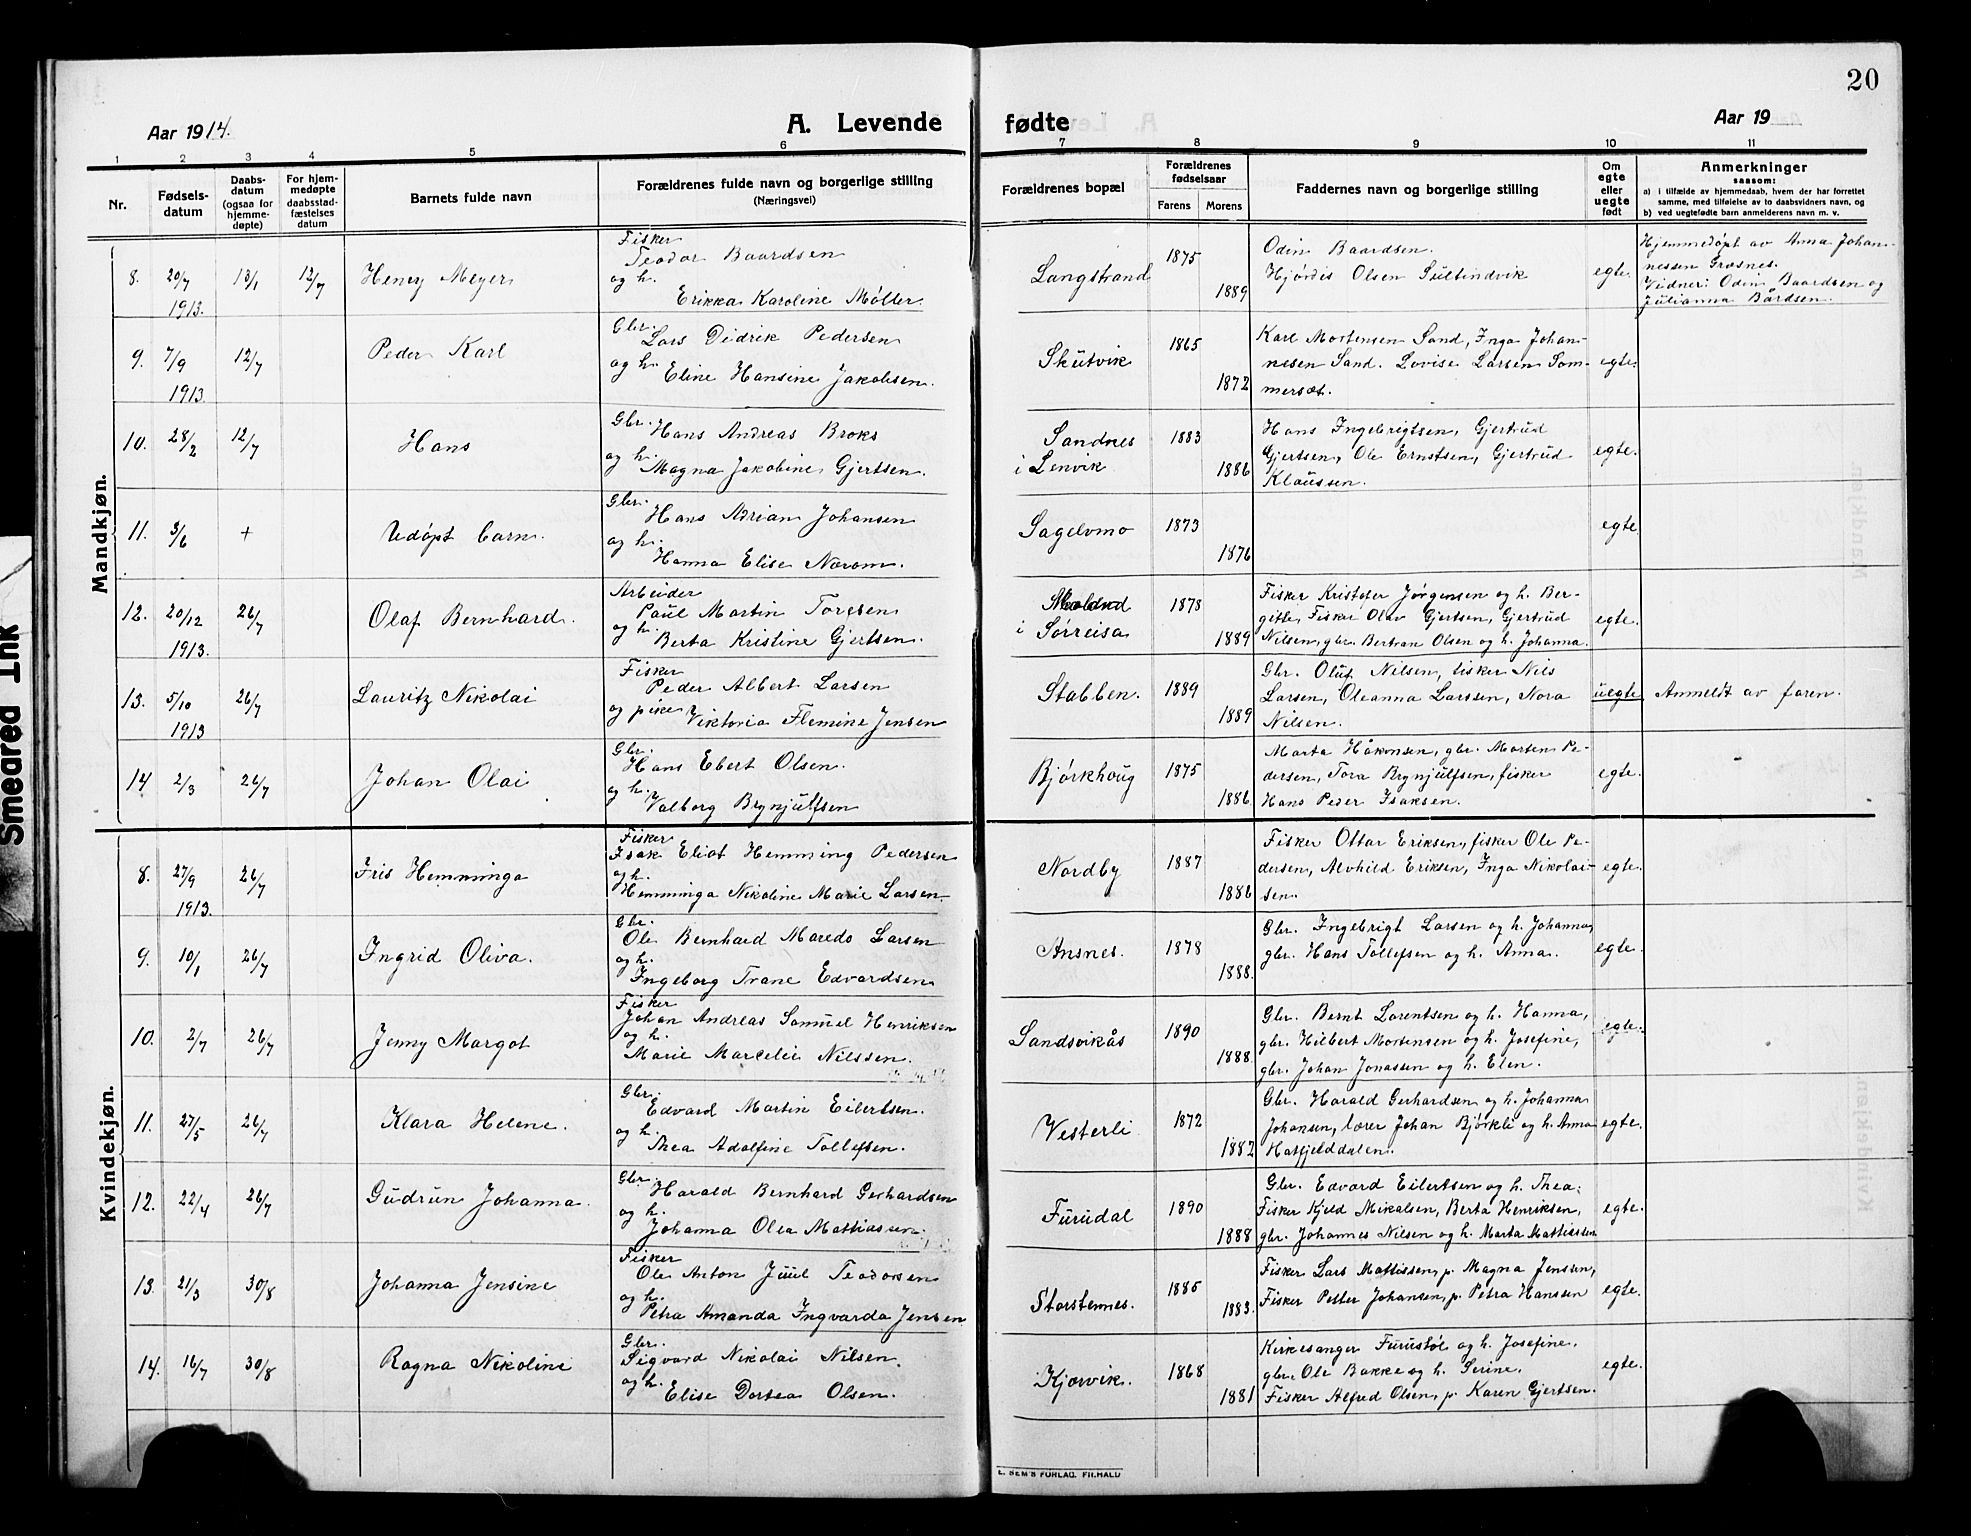 20
Aar 1914.
A. Levende
fødte
Aar 19
1 2 3 4 5 6 7 8 9 10 11
Nr.
Fødsels-
datum
Daabs-
datum
(ogsaa for
hjemme-
døpte)
For hjem-
medøpte
daabsstad-
fæstelses
datum
Barnets fulde navn
Forældrenes fulde navn og borgerlige stilling
(Næringsvei)
Forældrenes bopæl
Forældrenes
fødselsaar
Farens. Morens
Faddernes navn og borgerlige stilling
Om
egte
eller
uegte
født
Anmerkninger
saasom:
a) i tilfælde av hjemmedaab, hvem der har forrettet
samme, med tilføielse av to daabsvidners navn, og
b) ved uegtefødte barn anmelderens navn m. v.
Mandkjøn.
8. 20/7 1913. 13/1 12/7 Henry Meyer
Fisker
Teodor Baardsen
og h.
Erikka Karoline Møller.
Langstrand 1875 1889
Odin Baardsen.
Hjørdis Olsen Sultindvik
egte.
Hjemmedøpt av Anna Johan-
nessen Grasnes.
Vidner: Odin Baardsen og
Julianna Bårdsen.
9. 7/9 1913. 12/7 Peder Karl
Gbr.
Lars Didrik Pedersen
og h.
Eline Hansine Jakobsen.
Skutvik 1865 1872
Karl Mortensen Sand, Inga Johan-
nesen Sand. Lovise Larsen Som-
mersæt.
egte.
10. 28/2 12/7 Hans
Gbr.
Hans Andreas Broks
og h.
Magna Jakobine Gjertsen.
Sandnes
i Lenvik
1883 1886
Hans Ingebrigtsen, Gjertrud
Gjertsen, Ole Ernstsen, Gjertrud
Klaussen.
egte.
11. 3/6 + Udøpt barn.
Gbr.
Hans Adrian Johansen
og h.
Hanna Elise Nøram.
Sagelvmo 1873 1876
egte
12. 20/12 1913. 26/7 Olaf Bernhard.
Arbeider
Paul Martin Toresen
og h.
Berta Kristine Gjertsen.
i Sørreisa
1878 1889
Fisker Kristofer Jørgensen og h. Ber-
gitte, Fisker Olav Gjertsen, Gjertrud
Nilsen, gbr. Bertran Olsen og h. Johanna.
egte.
13. 5/10 1913 26/7 Lauritz Nikolai
Fisker
Peder Albert Larsen
og pike
Viktoria Flemine Jensen
Stabben. 1889 1889
Gbr. Oluf Nilsen, fisker Nils
Larsen, Oleanna Larssen, Nora
Nilsen.
uegte
Anmeldt av faren.
14 2/3 26/7 Johan Olai
Gbr.
Hans Ebert Olsen.
og h.
Valborg Brynjulfsen
Bjørkhoug 1875 1886
Marta Håkonsen, gbr. Morten Pe-
dersen, Tora Brynjulfsen, fisker
Hans Peder Isaksen.
egte.
Kvindekjøn.
8. 27/9 1913. 26/7 Iris Hemminga
Fisker
Isak Eliot Hemming Pedersen
og h.
Hemminga Nikoline Marie Larsen
Nordby 1887 1886
Fisker Ottar Eriksen, fisker Ole Pe-
dersen, Alvhild Eriksen, Inga Nikolai-
sen.
egte.
9. 10/1 26/7 Ingrid Oliva.
Gbr.
Ole Bernhard Maredo Larsen
og h.
Ingeborg Trane Edvardsen
Ansnes. 1878 1888.
Gbr. Ingebrigt Larsen og h. Johanna,
gbr. Hans Tollefsen og h. Anna.
egte.
10. 2/7 26/7 Jenny Margot
Fisker
Johan Andreas Samuel Henriksen
og h.
Marie Marcelie Nilssen.
Sandsvikås 1890 1888.
Gbr. Bernt Lorentsen og h. Hanna,
gbr. Hilbert Mortensen og h. Josefine,
gbr. Johan Jonassen og h. Elen.
egte.
11. 27/5 26/7 Klara Helene.
Gbr.
Edvard Martin Eilertsen.
og h.
Thea Adolfine Tollefsen.
Vesterli 1872 1882
Gbr. Harald Gerhardsen og h. Johanna
Johansen, lærer Johan Bjørkli og h. Anna
Hatfjelddalen.
egte.
12. 22/4 26/7 Gudrun Johanna.
Gbr.
Harald Bernhard Gerhardsen
og h.
Johanna Olea Mattiassen.
Furudal 1890 1888
Gbr. Edvard Eilertsen og h. Thea,
Fisker Kjeld Mikalsen, Berta Henriksen,
gbr. Johannes Nilsen og h. Marta Mattiassen
egte.
13. 21/3 30/8 Johanna Jensine
Fisker
Ole Anton Juul Teodorsen
og h.
Petra Amanda Ingvarda Jensen
Storstennes. 1885 1883.
Fisker Lars Mattissen, p. Magna Jenssen,
Fisker Petter Johansen, p. Petra Hanssen
egte.
14. 16/7 30/8 Ragna Nikoline
Gbr.
Sigvard Nikolai Nilsen.
og h.
Elise Dortea Olsen.
Kjørvik. 1868 1881
Kirkesanger Furustøl og h. Josefine.
gbr. Ole Bakke og h. Serine.
Fisker Alfred Olsen, p. Karen Gjertsen.
egte.
E. SEM'S FORLAG. FR.HALD
Smeared Ink